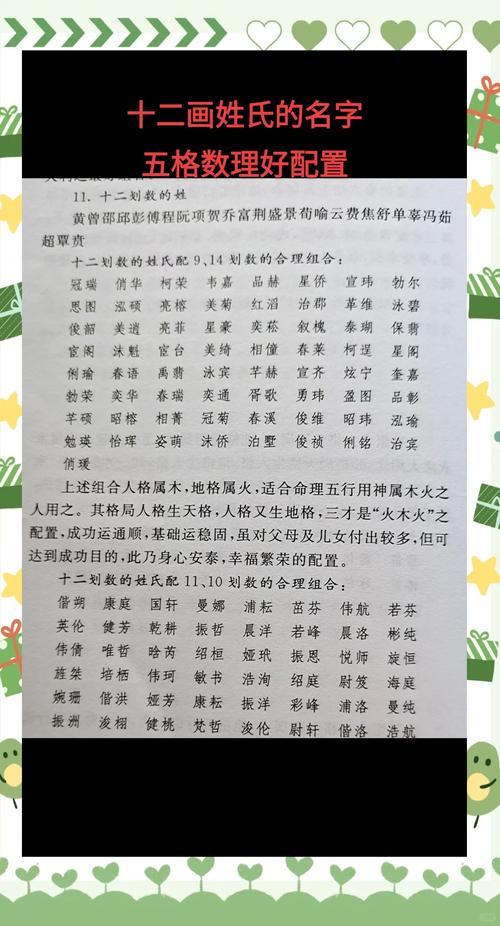 十二画姓氏的名字
五格数理好配置
11. 十二划数的姓
黄曾邵邱彭傅程阮项贺乔富荆盛景荀喻云费焦舒单辜冯茹
超覃贲
十二划数的姓氏配 9、14 划数的合理组合:
冠瑞 俏华 柯荣 韦嘉 品赫 星侨 宣玮 勃尔
思图 泓硕 亮榕 美菊 红滔 治郡 革维 泳碧
俊韶 美逍 亮菲 星豪 奕菘 叙槐 泰瑚 保翡
宦阁 沫魁 宦台 美绮 相僮 春莱 柯逞 星阁
俐瑜 春语 禹翡 泳宾 芊赫 宣齐 炫宁 奎嘉
勃荣 奕华 春瑞 奕通 胥歌 勇玮 盈图 品彰
芊硕 昭榕 相菁 冠菊 春溪 俊维 昭玮 泓瑜
勉瑛 怡珲 姿萌 沫侨 泊墅 俊祯 俐铭 治宾
俏瑗
上述组合人格属木,地格属火,适合命理五行用神属木火之
人用之。其格局人格生天格,人格又生地格,三才是“火木火”之
配置,成功运通顺,基础运稳固,虽对父母及儿女付出较多,但可
达到成功目的,此乃身心安泰,幸福繁荣的配置。
十二划数的姓氏配 11、10 划数的合理组合:
偕朔 康庭 国轩 曼娜 浦耘 茁芬 伟航 若芬
英伦 健芳 乾耕 振哲 晨洋 若峰 晨洛 彬纯
伟倩 唯哲 晗芮 绍桓 娅玳 振恩 悦师 旋恒
旌桀 培栖 伟珂 敏书 浩洵 绍庭 尉笈 海庭
婉珊 偕洪 娅芳 康耘 振洋 彩峰 浦洛 曼纯
振洲 浚栩 健桃 梵哲 浚伦 尉轩 偕洛 浩航